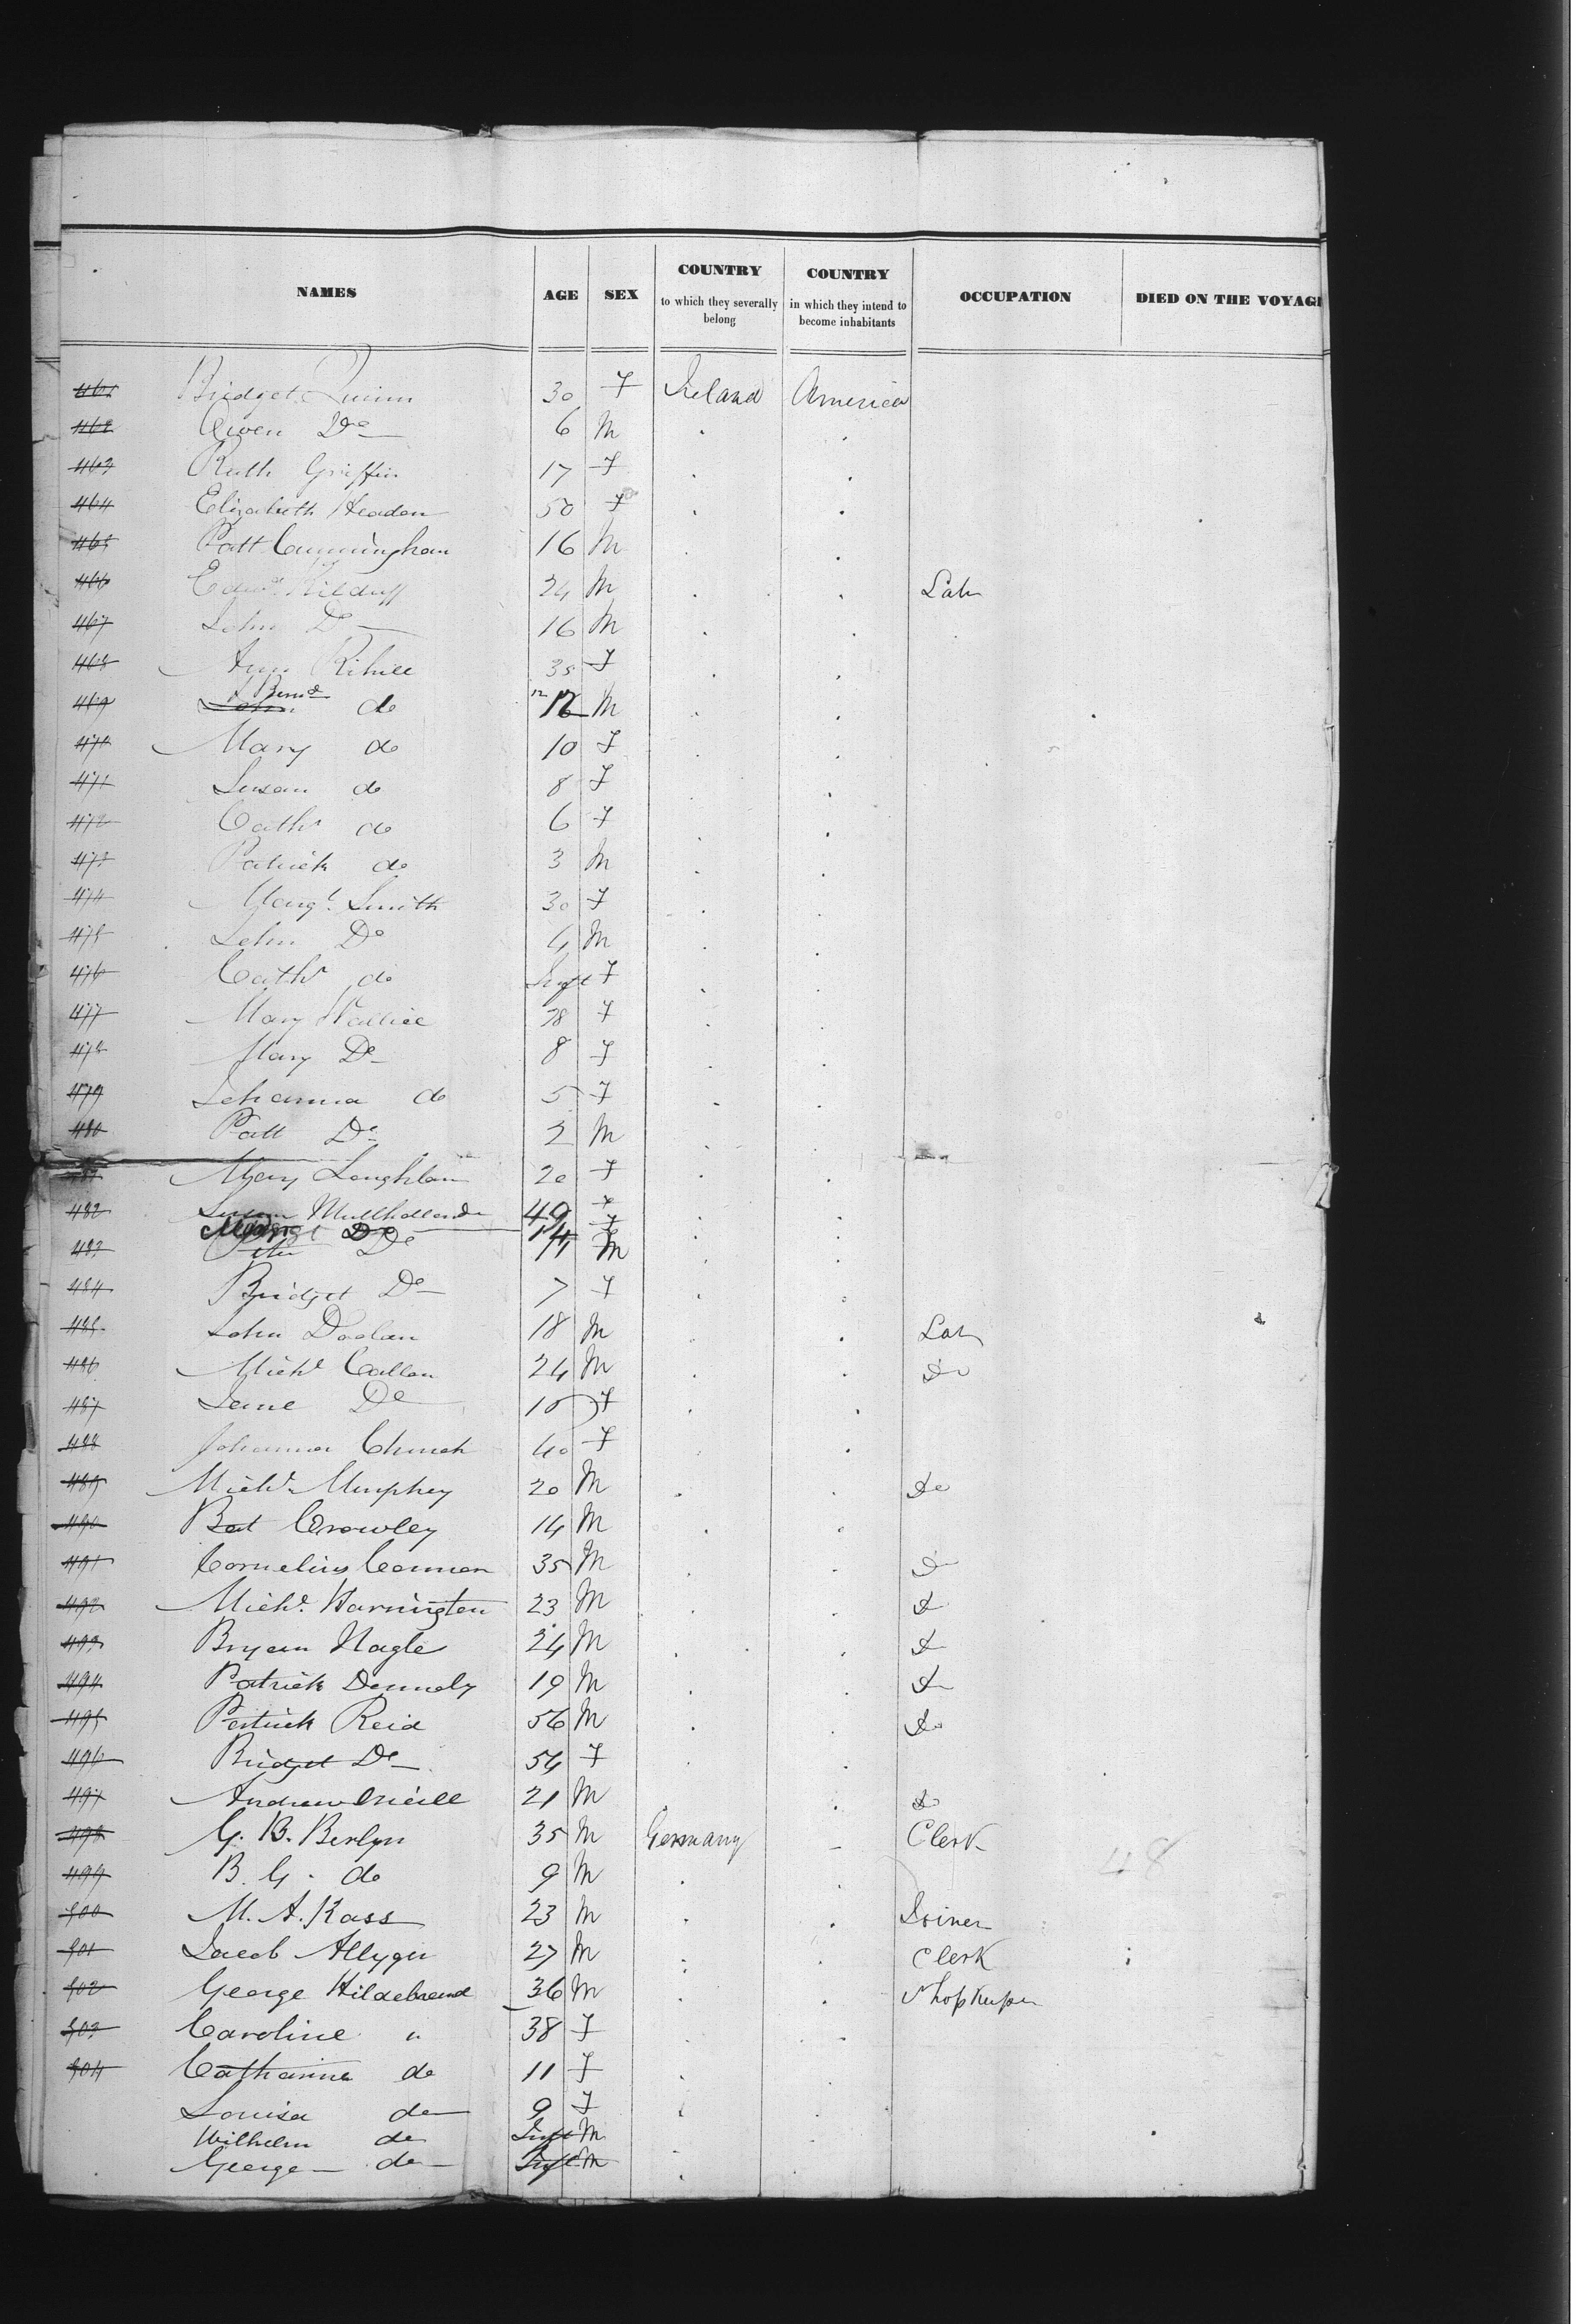 NAMES AGE SEX COUNTRY to which they severally belong COUNTRY in which they intend to become inhabitants OCCUPATION DIED ON THE VOYAG
461 Bridget Quinn 30 F Ireland America
462 Owen Do 6 M
463 Ruth Griffin 17 F
464 Elizabeth Headon 50 F
465 Patt Cunningham 16 M
466 Edwd Kilduff 24 M Labr
467 John Do 16 M
468 Ann Rihill 35 F
469 John Bernd do 12 12 M
470 Mary do 10 F
471 Susan do 8 F
472 Cathe do 6 F
473 Patrick do 3 M
474 Margt Smith 30 F
475 John Do 4 M
476 Cathe do Inft F
477 Mary Wallice 38 F
478 Mary Do 8 F
479 Johanna do 5 F
480 Patt Do 2 M
481 Mary Loughlan 20 F
482 Susan Mullholland 49 F
Margt Do 14 F
483 Peter Do 11 M
484 Bridget Do 7 F
485 John Doolan 18 M Lab
486 Michl Callan 24 M Do
487 Jane Do 10 F
488 Johanna Church 40 F
489 Michl Murphey 20 M Do
490 Bat Crowley 14 M
491 Cornelius Connor 35 M Do
492 Michl Harrington 23 M Do
493 Bryan Nagle 24 M Do
494 Patrick Dennely 19 M Do
495 Patrick Reid 56 M Do
496 Bridget Do 54 F
497 Andrew Oneill 21 M Do
498 G. B. Berlyn 35 M Germany Clerk
499 B. G. do 9 M 48
500 M. A. Kass 23 M Joiner
501 Jacob Allyger 27 M Clerk
502 George Hildebrand 36 M Shopkeeper
503 Caroline " 38 F
504 Catharina do 11 F
Louisa do 9 F
Wilhelm do Inft M
George do Inft M